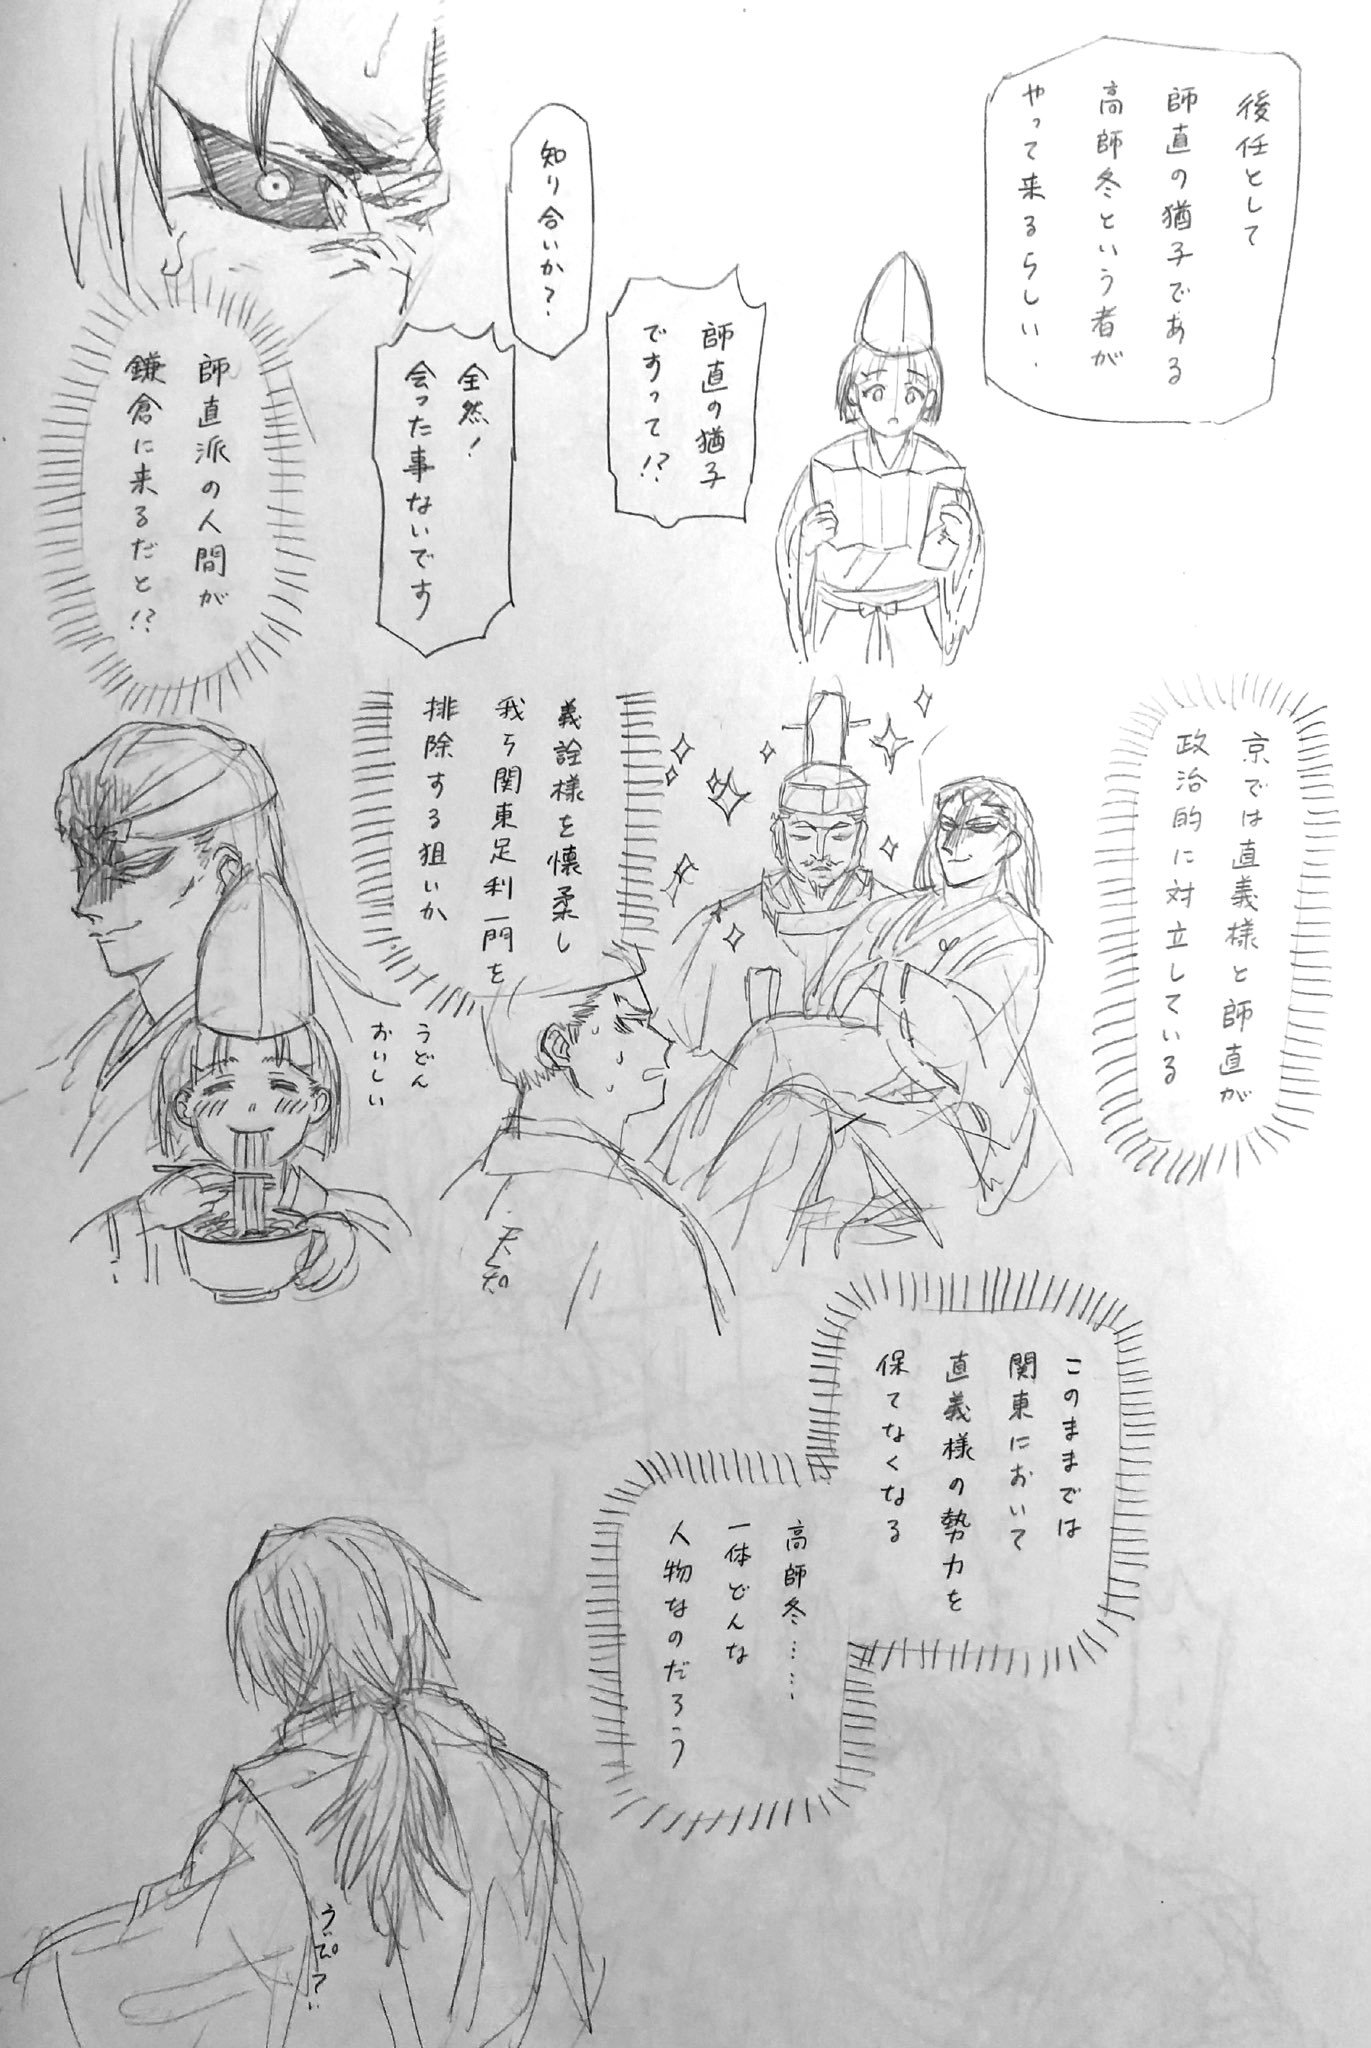 後任として
師直の猶子である
高師冬という者が
やって来るらしい.
師直の猶子
ですって!?
知り合いか?
全然!
会った事ないです
師直派の人間が
鎌倉に来るだと!?
京では直義様と師直が
政治的に対立している
義詮様を懐柔し
我ら関東足利一門を
排除する狙いか
うどん
おいしい
天知
このままでは
関東において
直義様の勢力を
保てなくなる
高師冬……
一体どんな
人物なのだろう